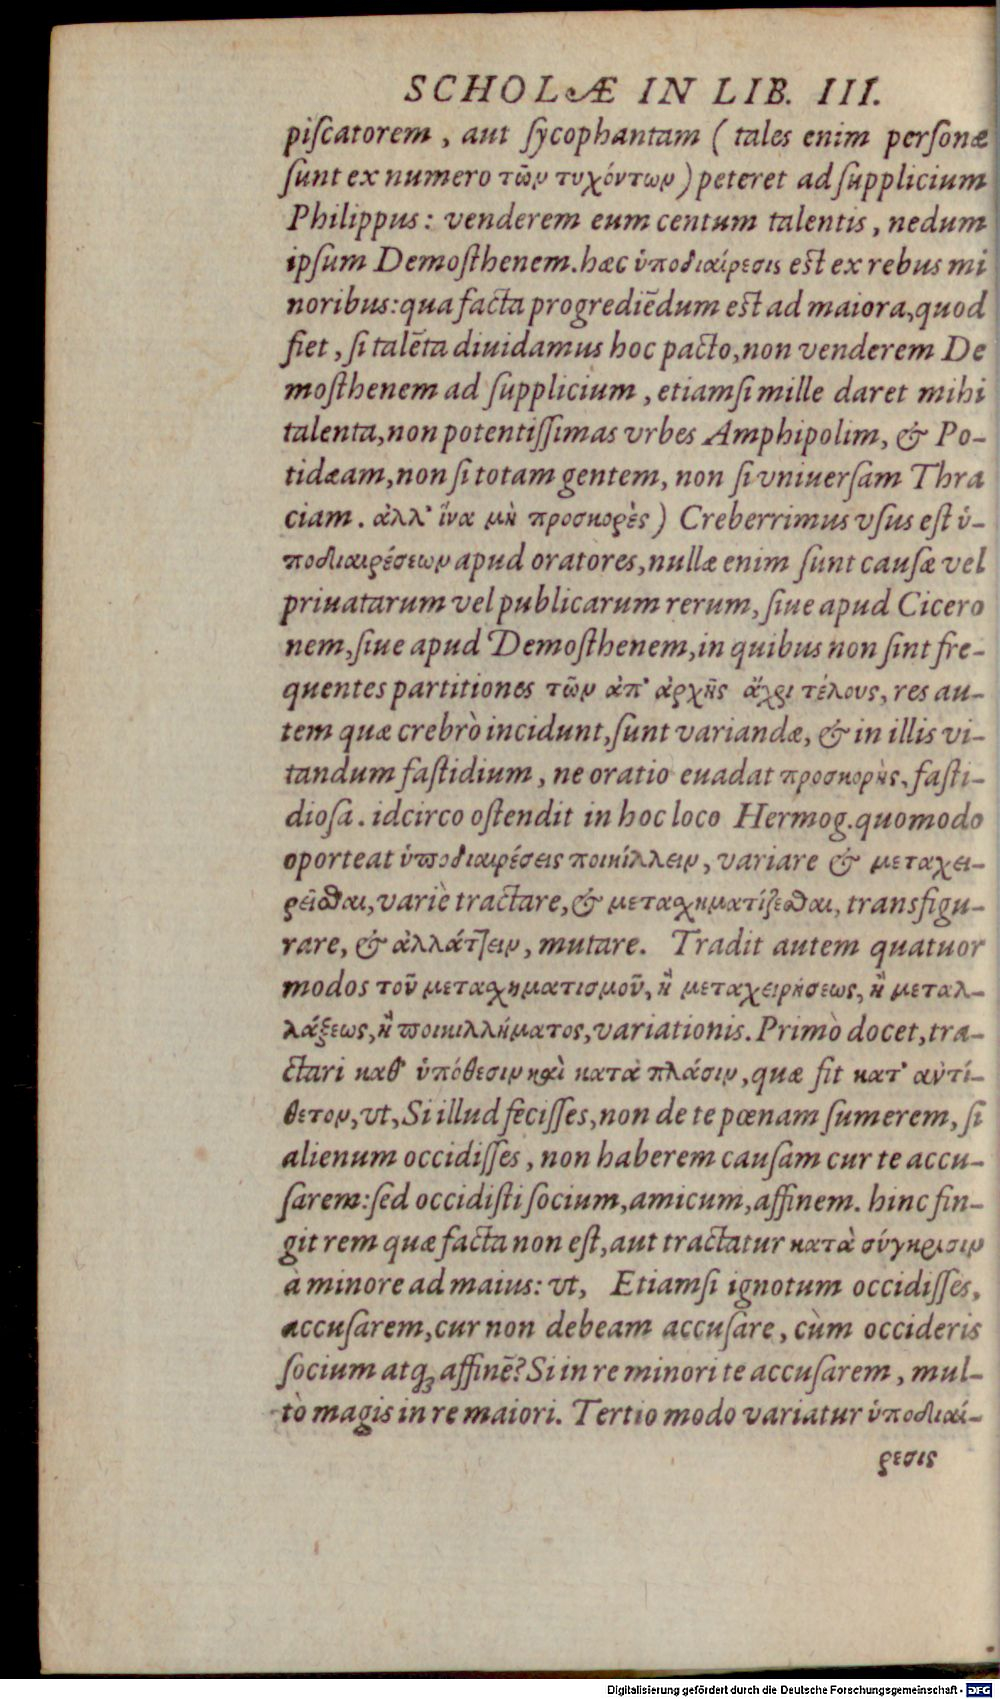 SCHOLÆ IN LIB. III.
piſcatorem, aut ſycophantam (tales enim perſonæ
ſunt ex numero τῶν τυχόντων) peteret ad ſupplicium
Philippus: venderem eum centum talentis, nedum
ipſum Demoſthenem. hæc ὑποδιαίρεσις eſt ex rebus mi
noribus: qua facta progrediēdum eſt ad maiora, quod
fiet, ſi talēta diuidamus hoc pacto, non venderem De
moſthenem ad ſupplicium, etiamſi mille daret mihi
talenta, non potentiſſimas vrbes Amphipolim, & Po-
tidæam, non ſi totam gentem, non ſi vniuerſam Thra
ciam. ἀλλ' ἵνα μὴ προσκορὲς) Creberrimus vſus eſt ὑ-
ποδιαιρέσεων apud oratores, nullæ enim ſunt cauſæ vel
priuatarum vel publicarum rerum, ſiue apud Cicero
nem, ſiue apud Demoſthenem, in quibus non ſint fre-
quentes partitiones τῶν ἀπ' ἀρχῆς ἄχρι τέλους, res au-
tem quæ crebrò incidunt, ſunt variandæ, & in illis vi-
tandum faſtidium, ne oratio euadat προσκορὴς, faſti-
dioſa. idcirco oſtendit in hoc loco Hermog. quomodo
oporteat ὑποδιαιρέσεις ποικίλλειν, variare & μεταχει-
ρεῖσθαι, variè tractare, & μετασχηματίζεσθαι, transfigu-
rare, & ἀλλάττειν, mutare. Tradit autem quatuor
modos τοῦ μετασχηματισμοῦ, ἢ μεταχειρήσεως, ἢ μεταλ-
λάξεως, ἢ ποικιλλήματος, variationis. Primò docet, tra-
ctari καθ' ὑπόθεσιν καὶ κατὰ πλάσιν, quæ fit κατ' ἀντί-
θετον, vt, Si illud feciſſes, non de te pœnam ſumerem, ſi
alienum occidiſſes, non haberem cauſam cur te accu-
ſarem: ſed occidiſti ſocium, amicum, affinem. hinc fin-
git rem quæ facta non eſt, aut tractatur κατὰ σύγκρισιν
à minore ad maius: vt, Etiamſi ignotum occidiſſes,
accuſarem, cur non debeam accuſare, cùm occideris
ſocium atq; affinē? Si in re minori te accuſarem, mul-
tò magis in re maiori. Tertio modo variatur ὑποδιαί-
ρεσις
Digitalisierung gefördert durch die Deutsche Forschungsgemeinschaft - DFG